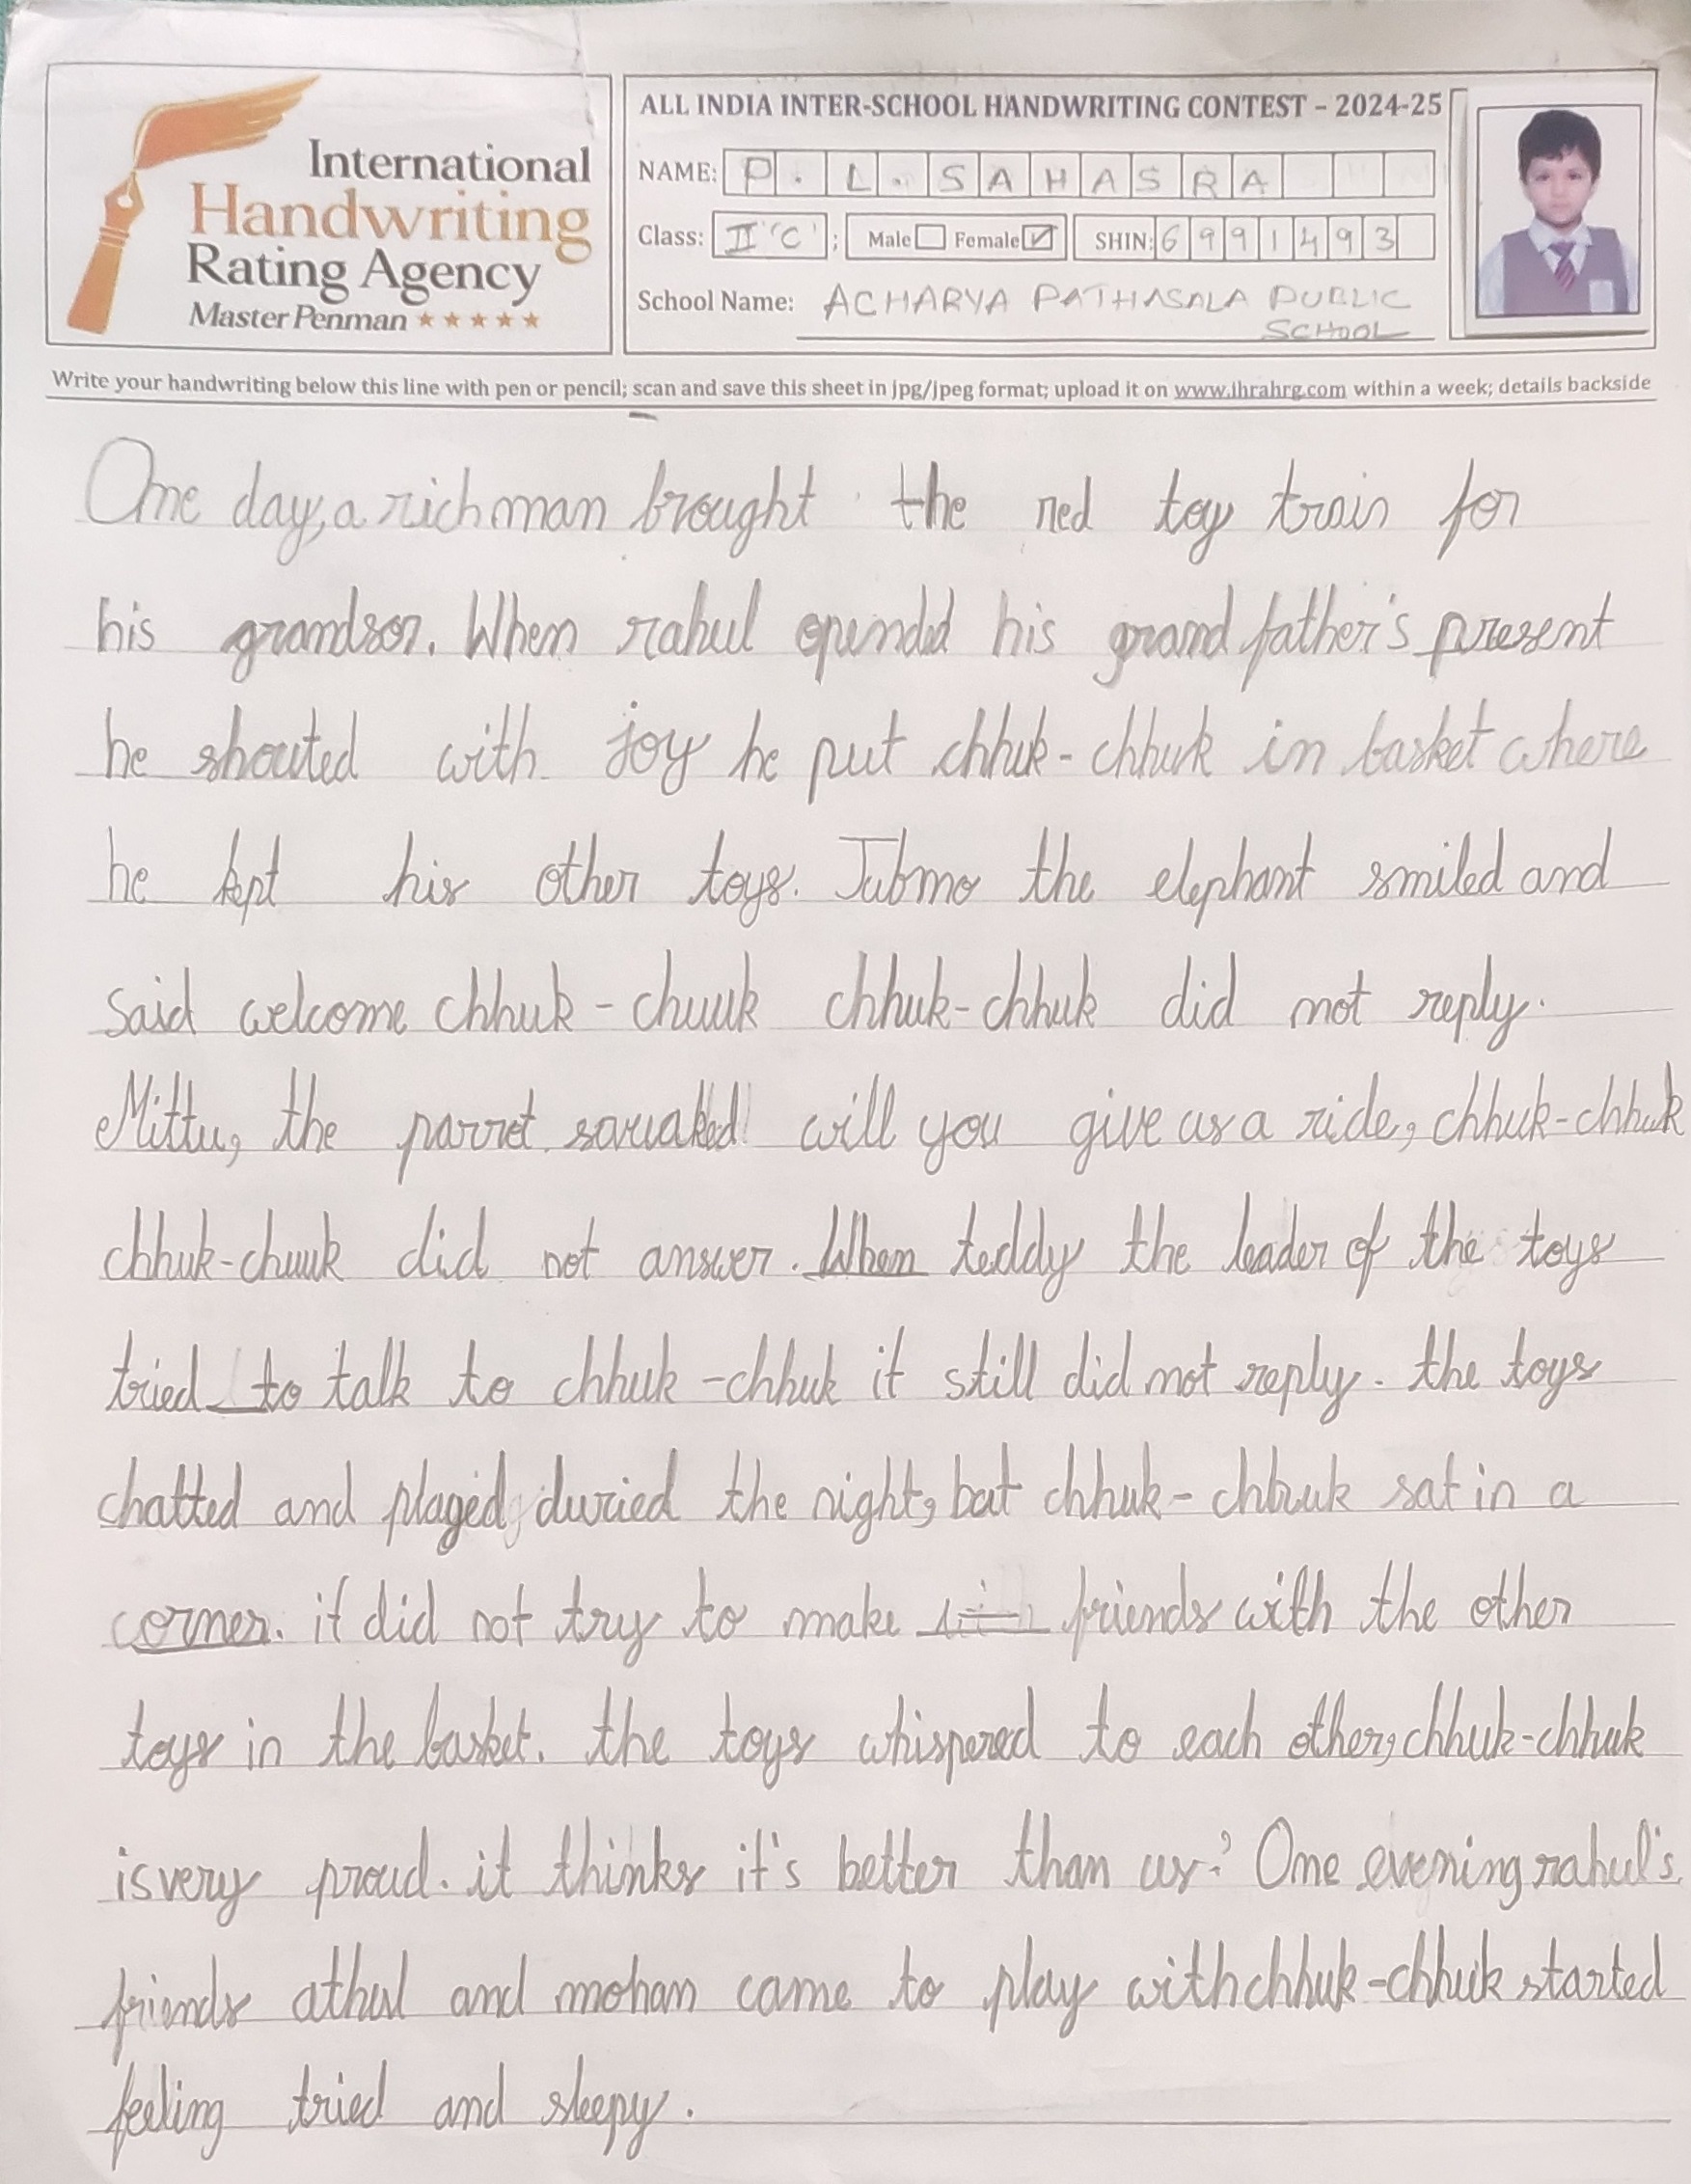 International
Handwriting
Rating Agency
Master Penman ★★★★★
ALL INDIA INTER-SCHOOL HANDWRITING CONTEST – 2024-25
NAME: P. L. SAHASRA
Class: II 'C' ; Male Female SHIN: 6991493
School Name: ACHARYA PATHASALA PUBLIC
SCHOOL
Write your handwriting below this line with pen or pencil; scan and save this sheet in jpg/jpeg format; upload it on www.ihrahrg.com within a week; details backside
One day, a rich man brought the red toy train for
his grandson. When rahul opended his grand father's present
he shouted with joy he put chhuk-chhuk in basket where
he kept his other toys. Jubmo the elephant smiled and
said welcome chhuk-chuuk chhuk-chhuk did not reply.
Mittu, the parrot will you give us a ride, chhuk-chhuk
chhuk-chuuk did not answer. When teddy the leader of the toys
tried to talk to chhuk-chhuk it still did not reply. the toys
chatted and played duried the night, but chhuk-chhuk sat in a
corner. it did not try to make friends with the other
toys in the basket. the toys whispered to each other, chhuk-chhuk
is very proud. it thinks it's better than us.' One evening rahul's
friends athul and mohan came to play with chhuk-chhuk started
feeling tried and sleepy.